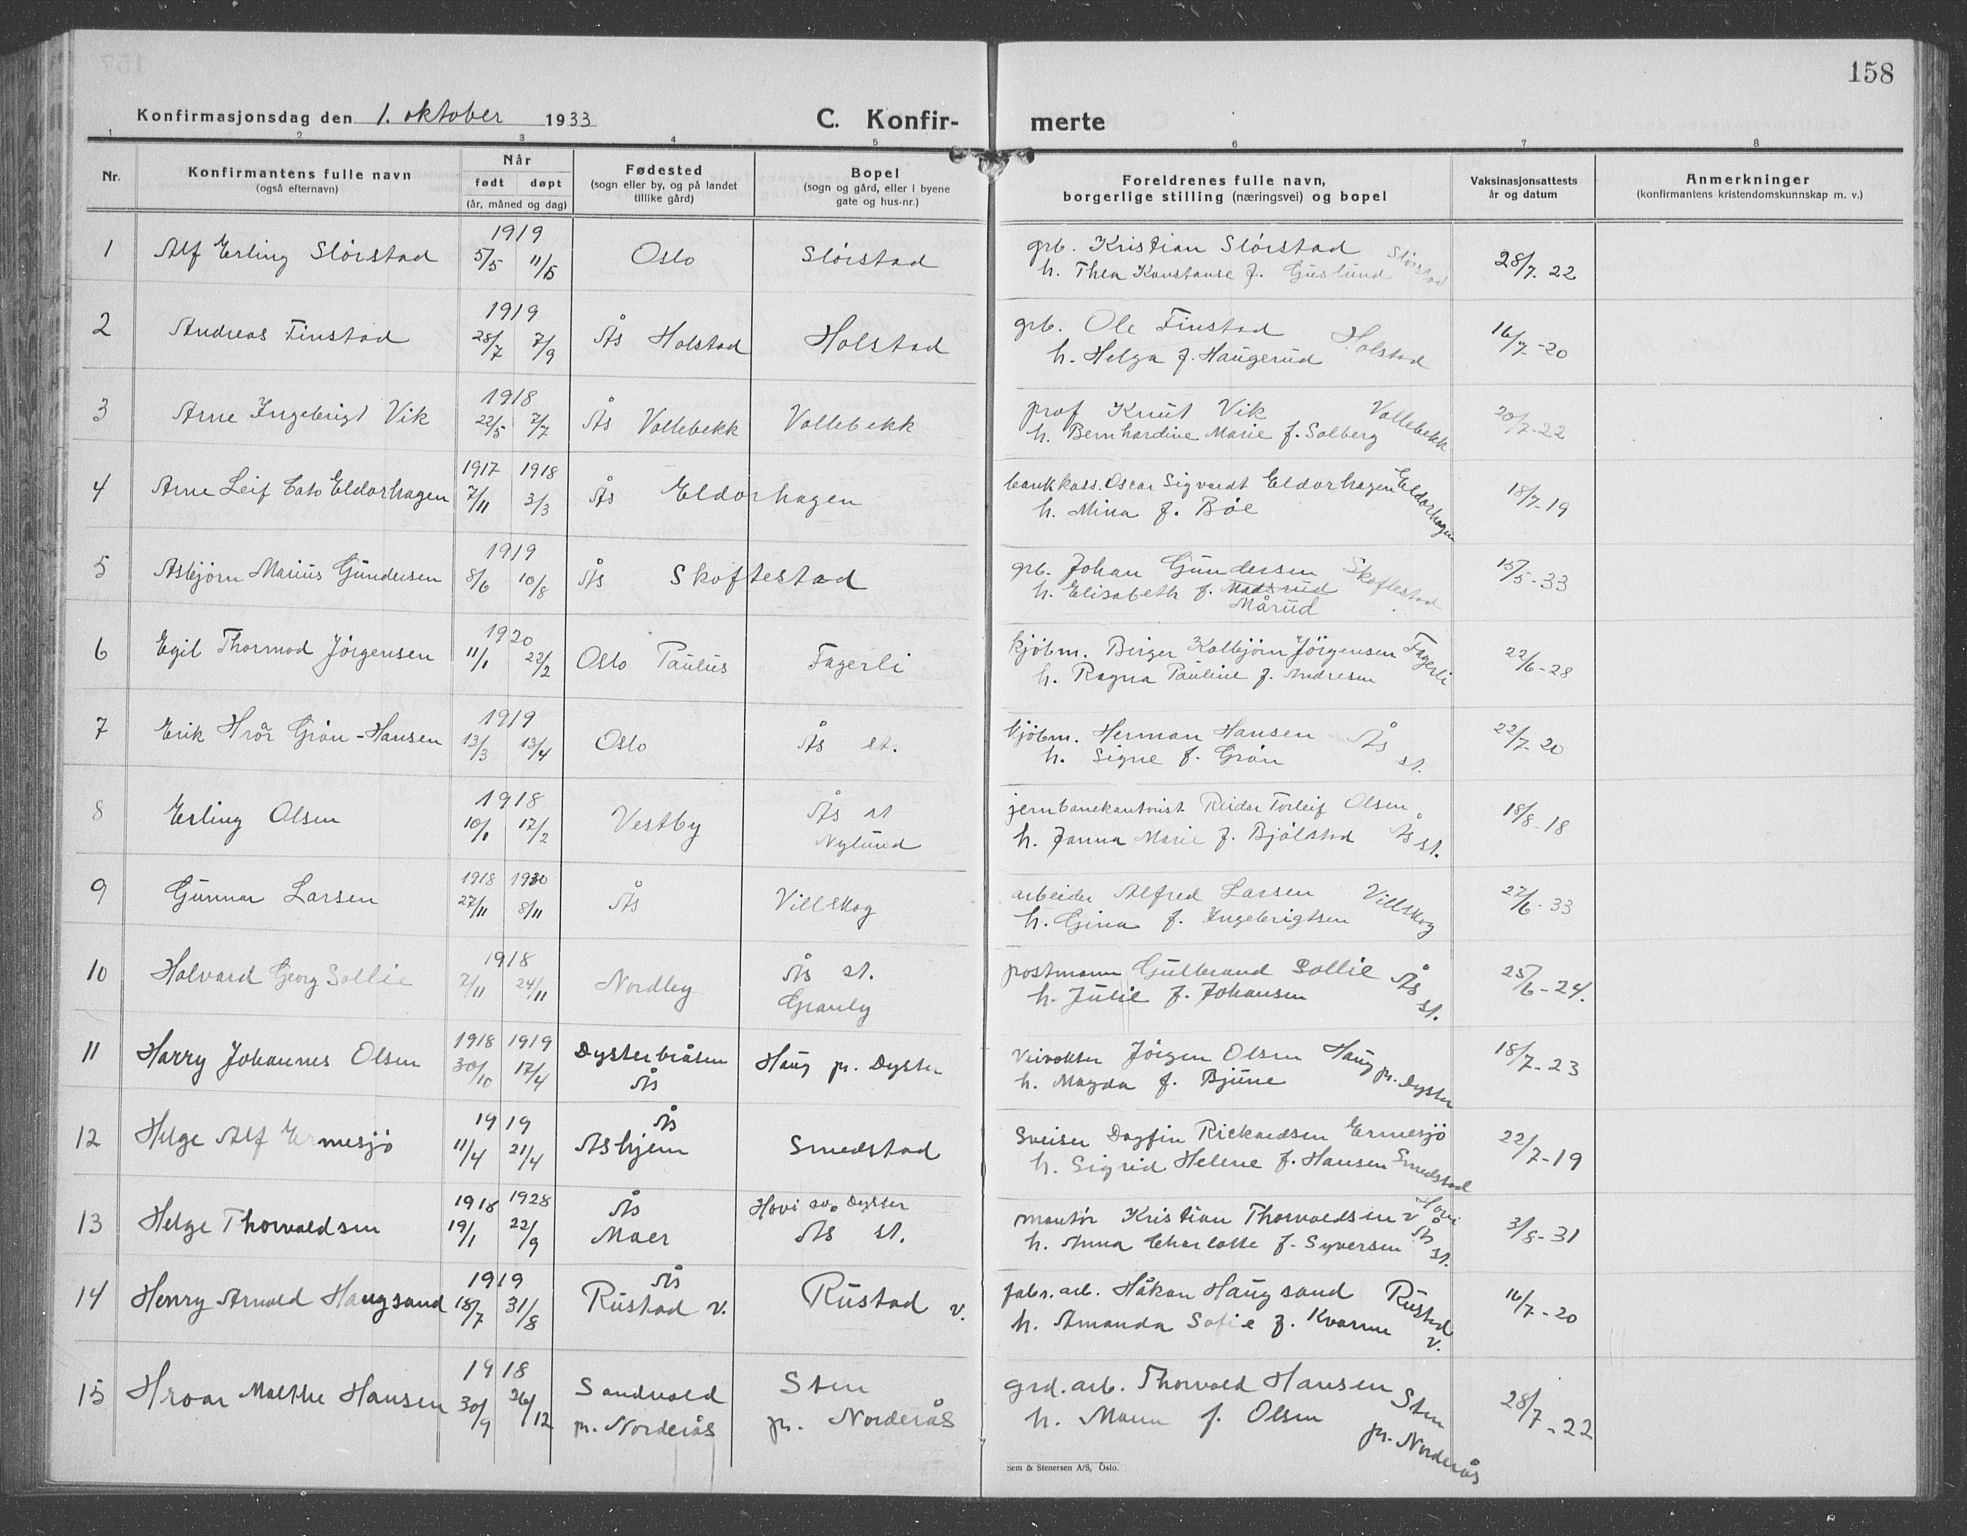 158
Konfirmasjonsdag den 1. oktober 1933 C. Konfir- merte
1 2 3 4 5 6 7 8
Nr. Konfirmantens fulle navn (også efternavn) Når født døpt (år, måned og dag) Fødested (sogn eller by, og på landet tillike gård) Bopel (sogn og gård, eller i byene gate og hus-nr.) Foreldrenes fulle navn, borgerlige stilling (næringsvei) og bopel Vaksinasjonsattests år og datum Anmerkninger (konfirmantens kristendomskunnskap m. v.)
1 Alf Erling Slørstad 1919 5/5 11/5 Oslo Slørstad grb. Kristian Slørstad Slørstad 28/7-22
h. Thea Konstanse f. Guslund
2 Andreas Finstad 1919 28/7 7/9 Ås Holstad Holstad grb. Ole Finstad Holstad 16/7-20
h. Helga f. Haugerud
3 Arne Ingebrigt Vik 1918 22/5 7/7 Ås Vollebekk Vollebekk prof Knut Vik Vollebekk 20/7-22
h. Bernhardine Marie f. Solberg
4 Arne Leif Cato Eldorhagen 1917 7/11 1918 3/3 Ås Eldorhagen bankkass. Oscar Sigvardt Eldorhagen Eldorhagen 18/7-19
h. Mina f. Bøe
5 Asbjørn Marius Gundersen 1919 8/6 10/8 Ås Skoftestad grb. Johan Gundersen Skoftestad 15/5-33
h. Elisabeth f. Madsrud
Mårud
6 Egil Thormod Jørgensen 1920 11/1 22/2 Oslo Paulus Fagerli kjøbm. Birger Kolbjørn Jørgensen Fagerli 22/6-28
h. Ragna Pauline f. Andresen
7 Erik Hroar Grøn-Hansen 1919 13/3 13/4 Oslo Ås st. kjøbm. Herman Hansen Ås st. 22/7-20
h. Signe f. Grøn
8 Erling Olsen 1918 10/1 17/2 Vestby Ås st Nylund jernbanekontorist Reidar Torleif Olsen 18/8-18
h. Janna Marie f. Bjølstad Ås st.
9 Gunnar Larsen 1918 27/11 1930 8/11 Ås Villskog arbeider Alfred Larsen Villskog 27/6-33
h. Gina f. Ingebrigtsen
10 Halvard Georg Sollie 1918 7/11 24/11 Nordby Ås st. Granly postmann Gulbrand Sollie Ås st. 25/6-24.
h. Julie f. Johansen
11 Harry Johannes Olsen 1918 30/10 1919 17/4 Dysterbråten Ås Haug pr. Dyster Veivokter Jørgen Olsen Haug pr. Dyster 18/7-23
h. Magda f. Bjune
12 Helge Alf Ermesjø 1919 11/4 21/4 Ås Åshjem Smedstad Sveiser Dagfin Rickardsen Ermesjø 22/7-19
h. Sigrid Helene f. Hansen Smedstad
13 Helge Thorvaldsen 1918 19/1 1928 22/9 Ås Moer Hovi av Dyster Ås st. montør Kristian Thorvaldsen Hovi v Ås st. 3/8-31
h. Anna Charlotte f. Syversen
14 Henry Arnold Haugsand 1919 18/7 31/8 Ås Rustad v. Rustad v. fabr. arb. Håkon Haugsand Rustad v. 16/7-20
h. Amanda Sofie f. Kvarme
15 Hroar Malthe Hansen 1918 30/9 26/12 Sandvold pr. Norderås Sten pr. Norderås grd. arb. Thorvald Hansen Sten pr. Norderås 28/7-22
h. Marn f. Olsen
Sem & Stenersen A/S, Oslo.